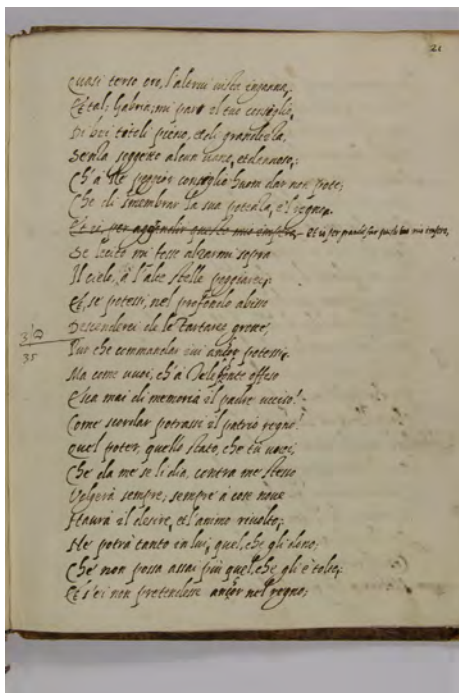 21
Quasi terso oro, l'altrui viste inganna,
Et tal, Gabria, mi pare il tuo consiglio,
Di bei titoli pieno, et di grandezza,
Senza soggetto alcun vano, et dannoso,
Ch'à Re peggior consiglio huom dar non pote,
Che di smembrar la sua potenza, e 'l regno.
Et io per aggrandir questo mio impero, - Et io per grande far questo mio impero,
Se lecito mi fosse alzarmi sopra
Il cielo, à l'alte stelle poggiarei,
Et, se potessi, nel profondo abisso
Descenderei de le Tartaree grotte,
Pur che commandar ivi anchor potessi.
Ma come vuoi, ch'à Telefonte offeso
Esca mai di memoria il padre ucciso?
Come scordar potrassi il patrio regno?
Quel poter, quello stato, che tu vuoi,
Che da me se li dia, contra me stesso
Volgerà sempre; sempre à cose nove
Havrà il desire, et l'animo rivolto,
Ne potrà tanto in lui, quel, che gli dono,
Che non possa assai più quel, che gli è tolto.
Et s'ei non pretendesse anchor nel regno,
35